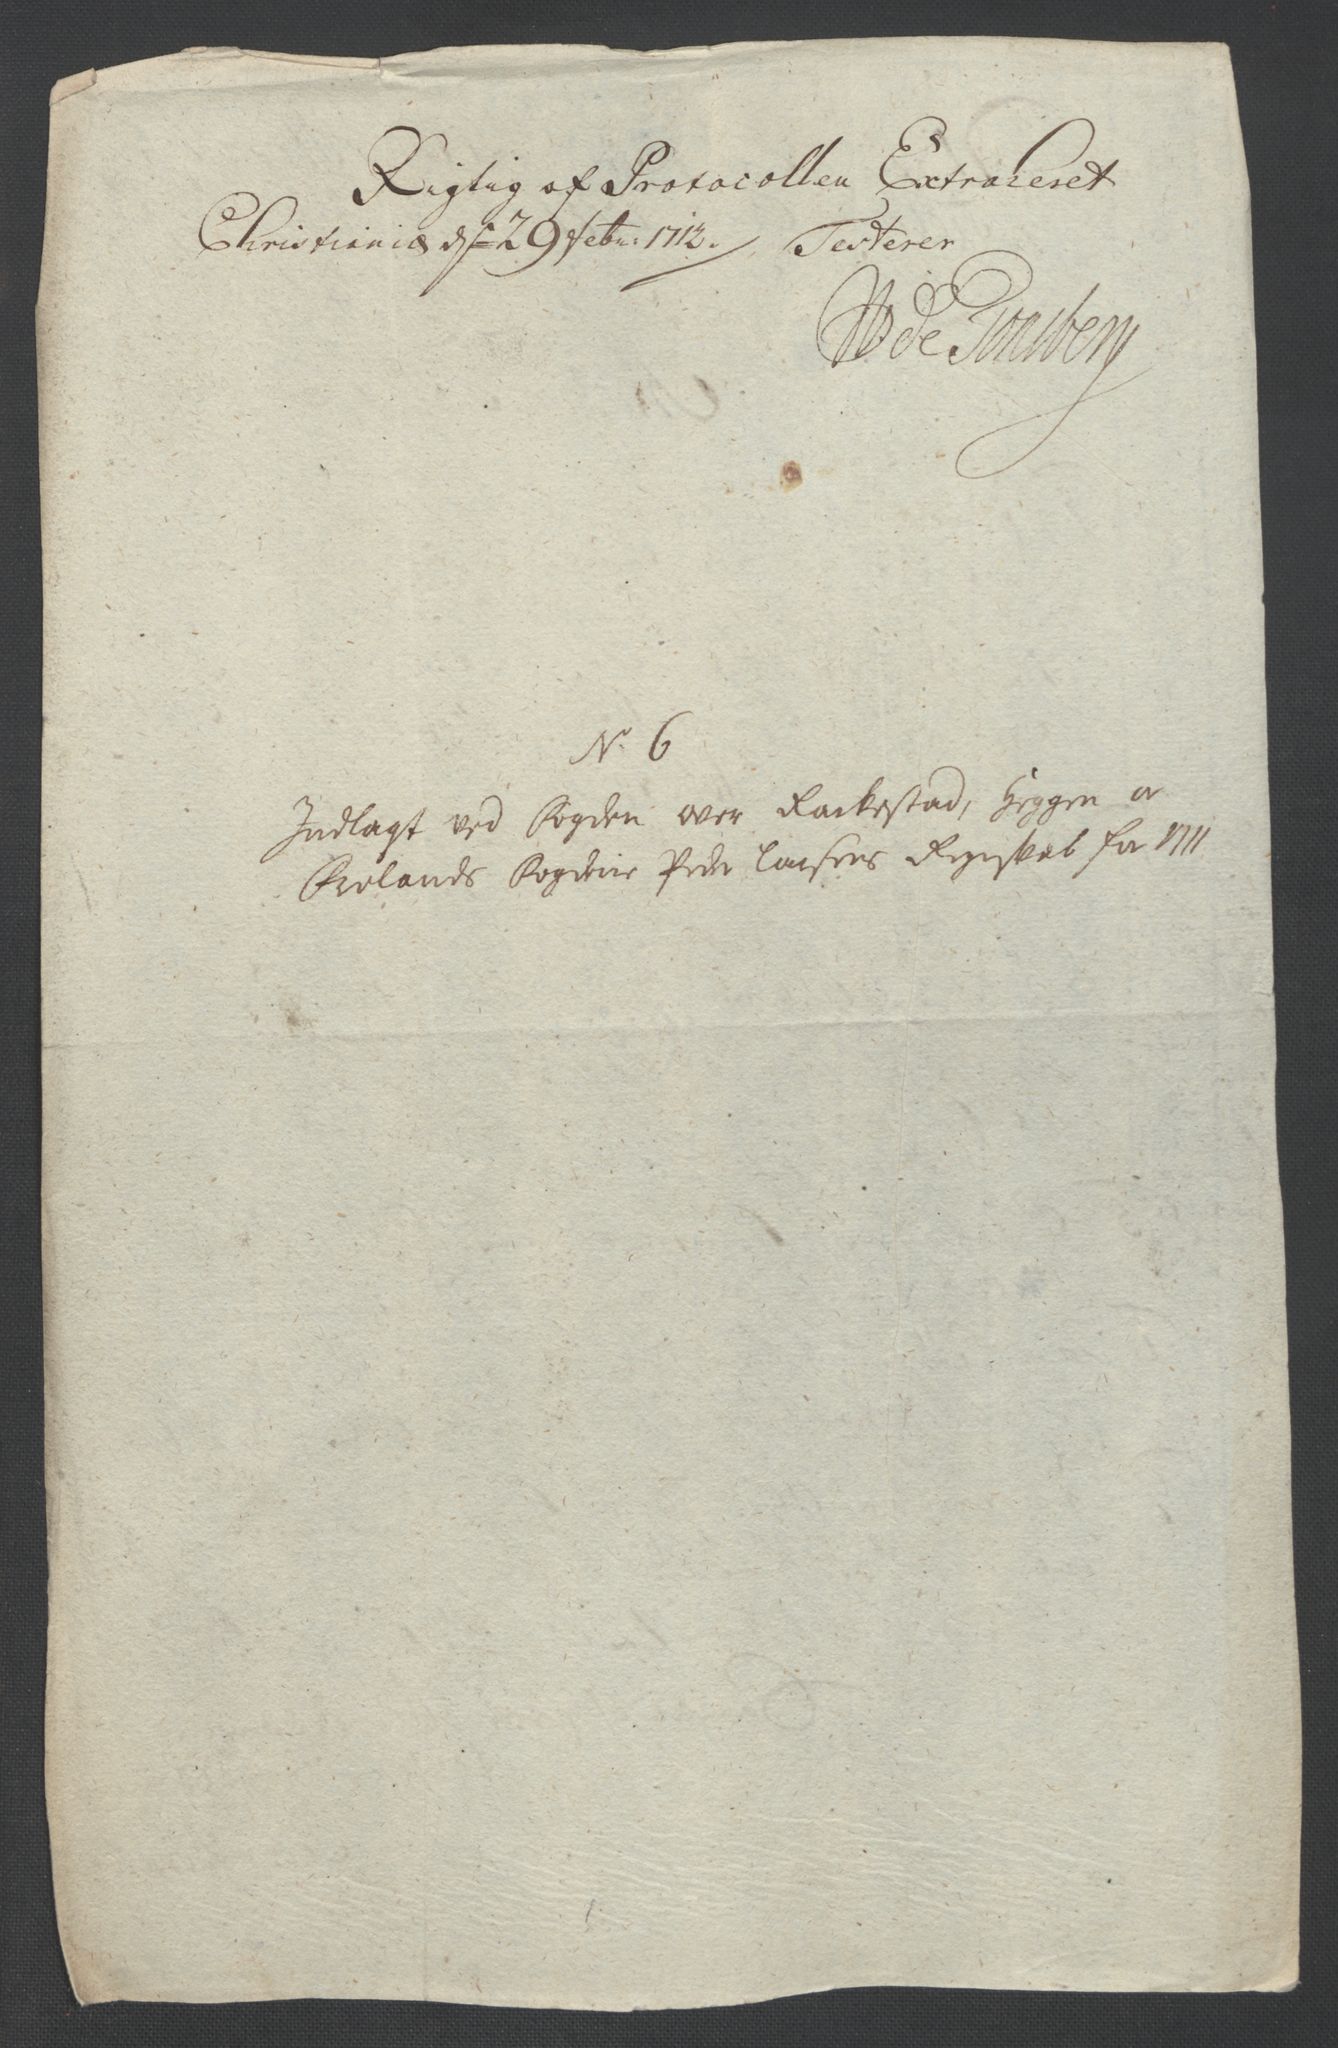 Rigtig af Protocollen Extraheret
Christiania d 29 Febr: 1712. Testerer
de Tonsberg
No. 6
Indlagt ved Fogden over Rackestad, Heggen o
Frølands Fogderie Peder Larsens Regnskab for 1711